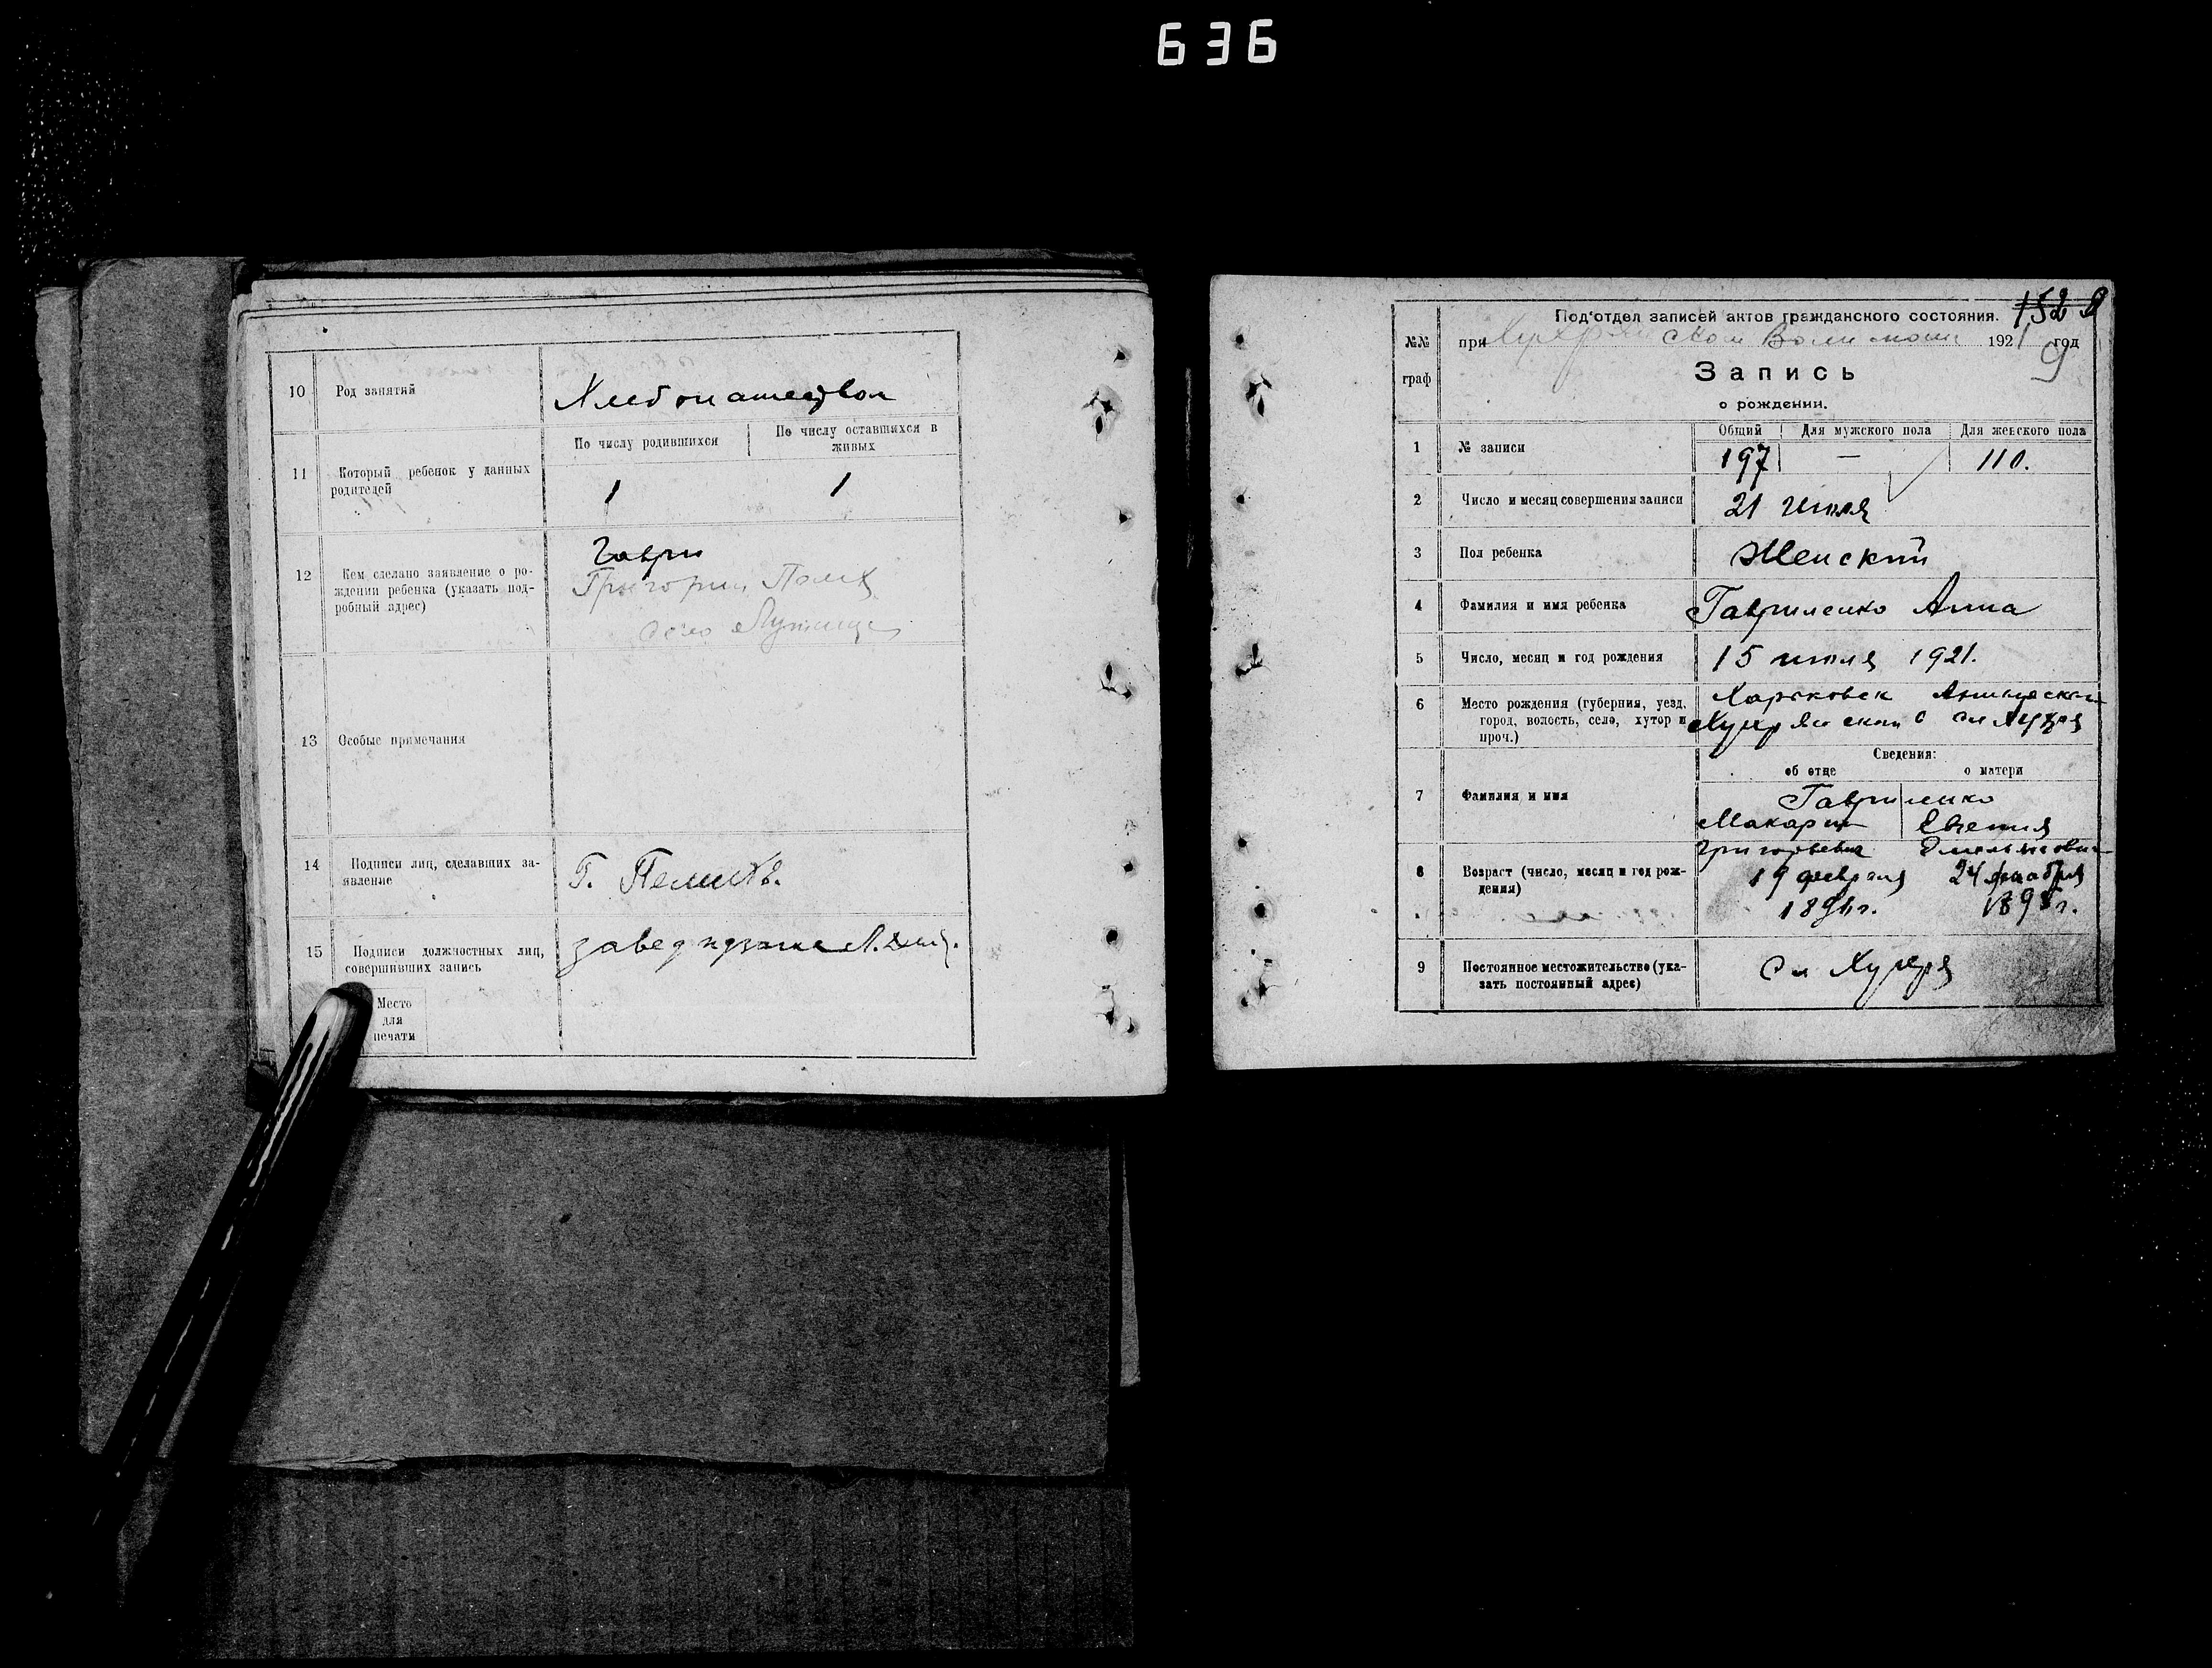 636
10 Род занятий Хлебопашество
11 Который ребенок у данных
родителей
По числу родившихся
По числу оставшихся в
живых
1 1
12 Кем сделано заявление о ро-
ждении ребенка (указать под-
робный адрес)
Гаври
Григорий
село
13 Особые примечания
14 Подписи лиц, сделавших за-
явление
Г.
15 Подписи должностных лиц,
совершивших запись
завед
Место
для
печати
152
Под'отдел записей актов гражданского состояния.
№№ при 1921 год
9
граф
Запись
о рождении.
1 № записи
Общий Для мужского пола Для женского пола
197 — 110.
2 Число и месяц совершения записи 21 июля
3 Пол ребенка Женский
4 Фамилия и имя ребенка Гавриленко Анна
5 Число, месяц и год рождения 15 июля 1921.
6 Место рождения (губерния, уезд,
город, волость, село, хутор и
проч.)
Харьковск
Сведения:
об отце о матери
7 Фамилия и имя
Гавриленко
Макарий Евгения
Григорьевич
8 Возраст (число, месяц и год рож-
дения)
19 февраля 24 декабря
9 Постоянное местожительство (ука-
зать постоянный адрес)
Сл Хухря